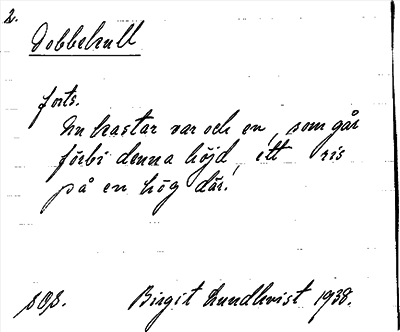 2.
Dobbekull
forts.
Nu kastar var och en, som går
förbi denna höjd, ett ris
på en hög där!
Birgit Lundkvist 1938.